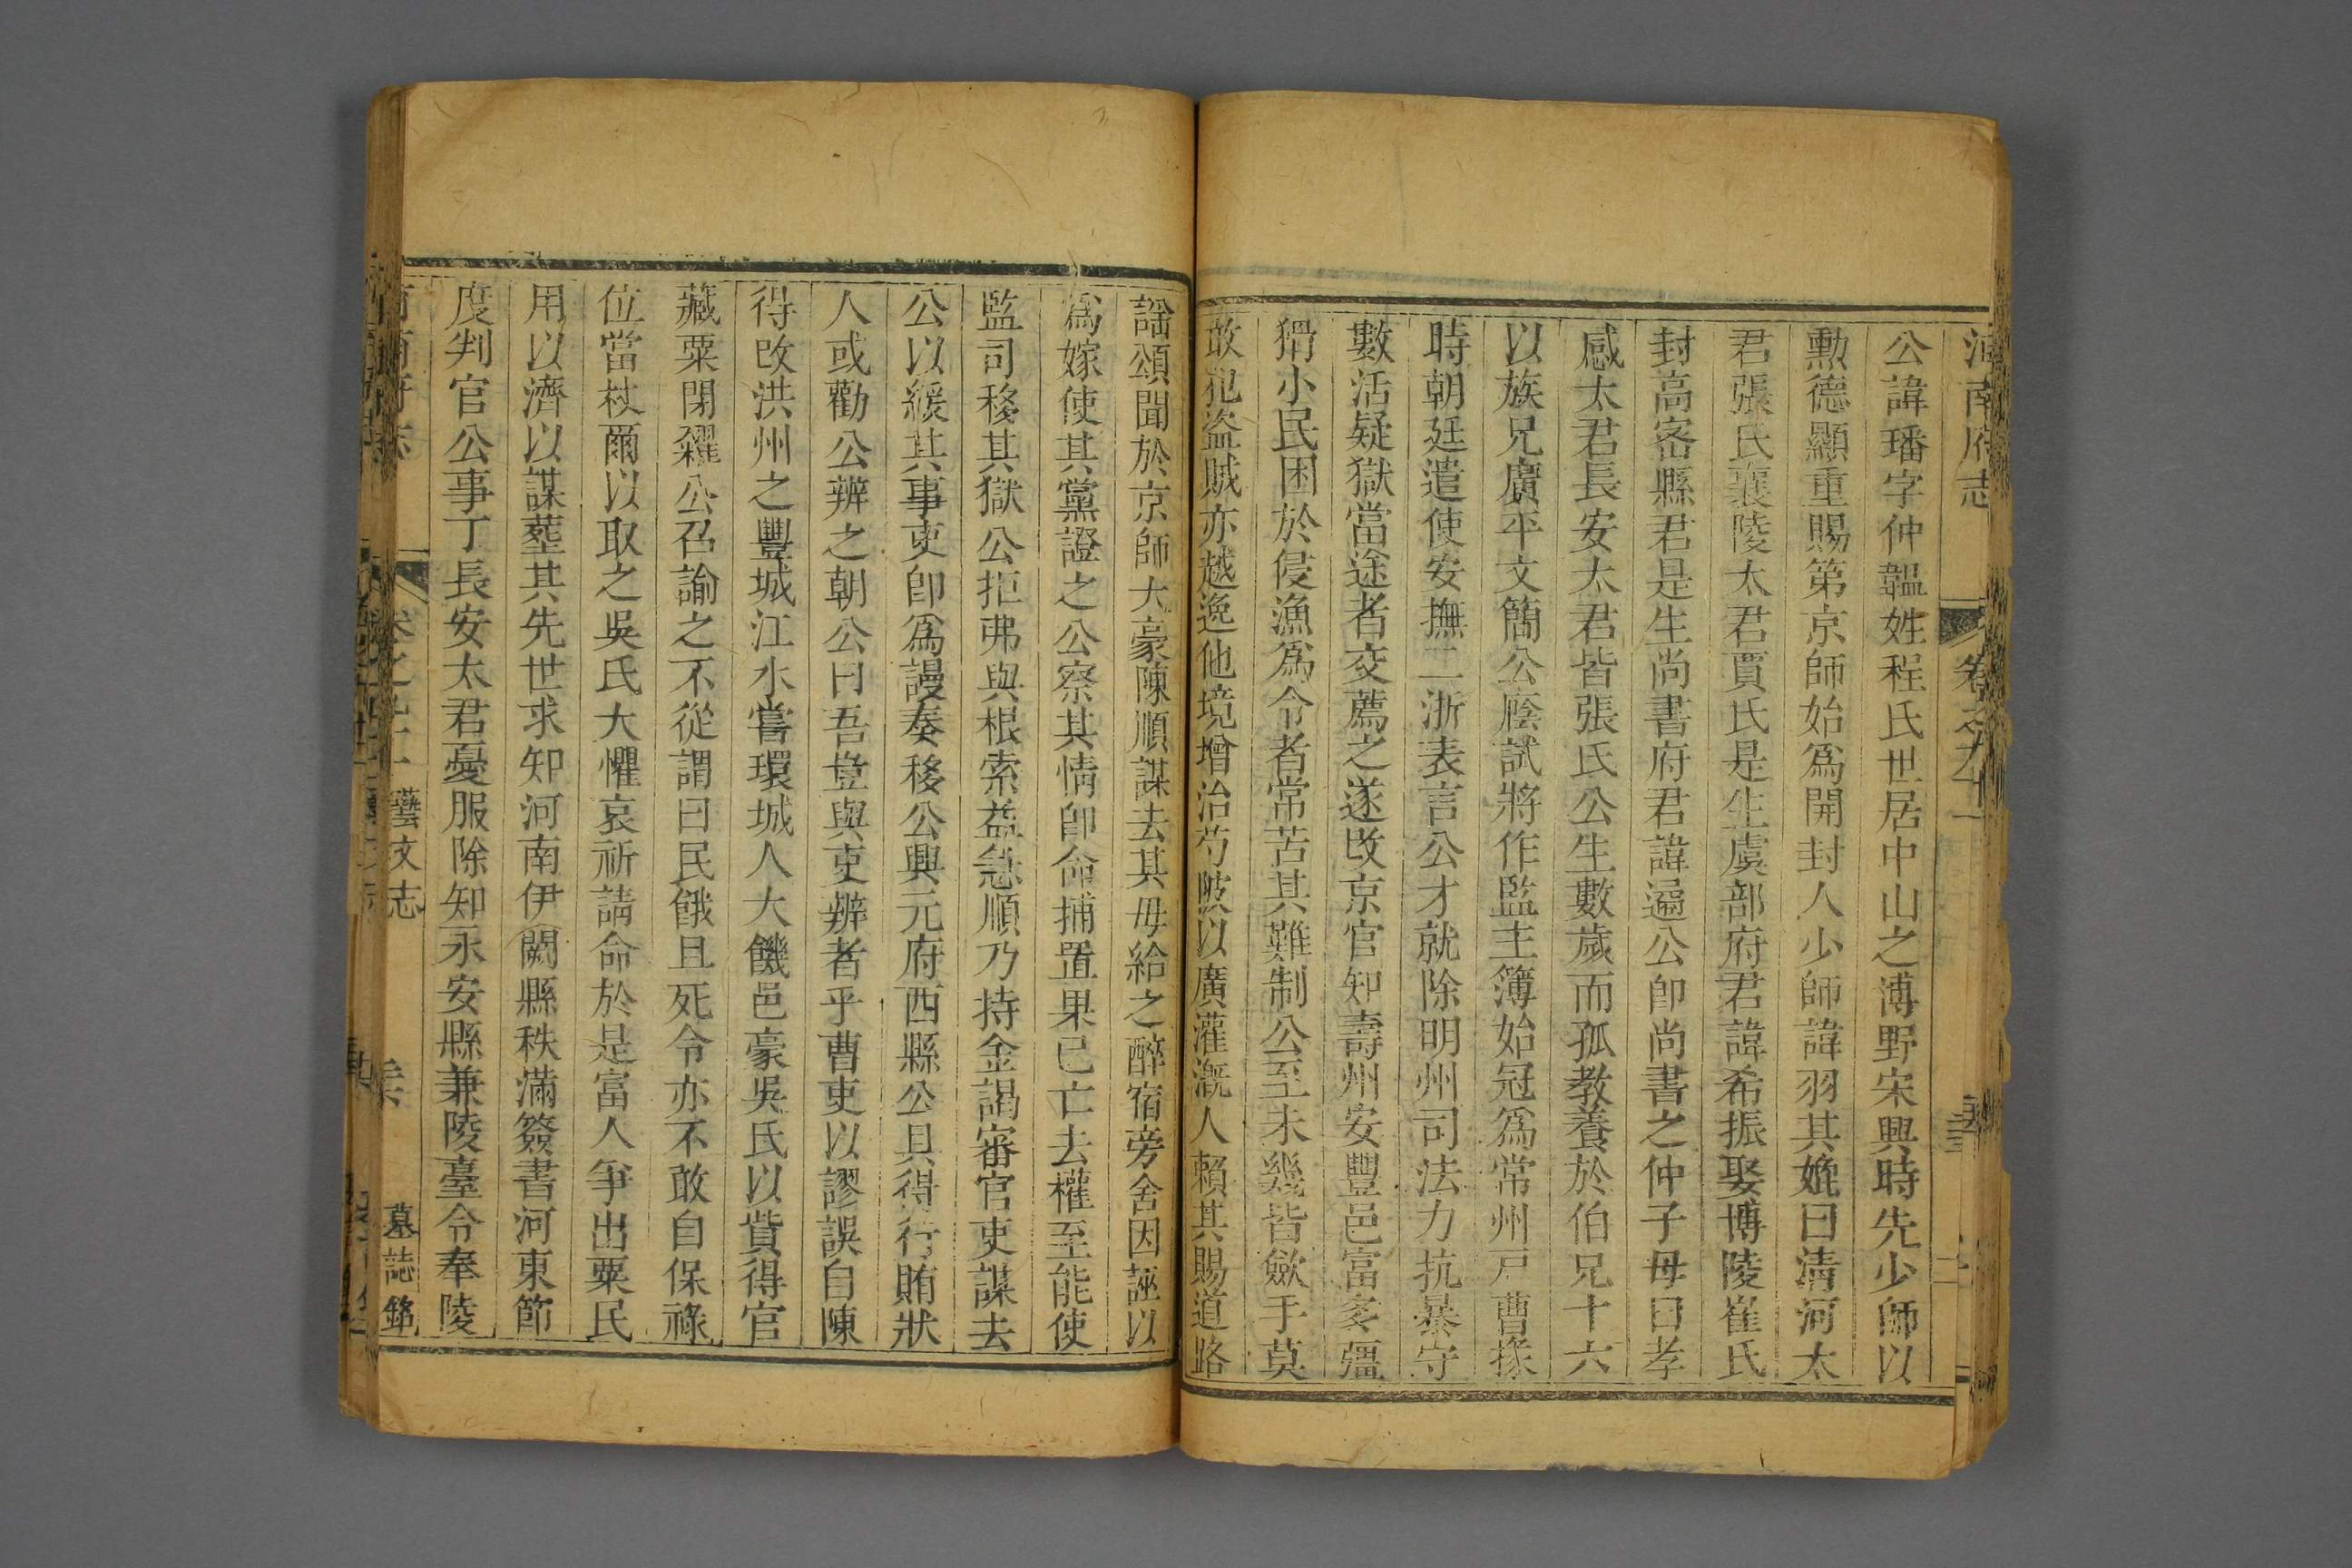 河南府志
卷之九十一
公諱璠字仲韞姓程氏世居中山之博野宋興時先少師以
勳德顯重賜第京師始爲開封人少師諱羽其媲曰淸河太
君張氏襄陵太君賈氏是生虞部府君諱希振娶博陵崔氏
封高密縣君是生尚書府君諱遹公卽尚書之仲子母曰孝
感太君長安太君皆張氏公生數歲而孤敎養於伯兄十六
以族兄廣平文簡公廕試將作監主簿始冠爲常州戸曹掾
時朝廷遣使安撫二浙表言公才就除明州司法力抗暴守
數活疑獄當途者交薦之遂改京官知壽州安豐邑富豪彊
猾小民困於侵漁爲令者常苦其難制公至未幾皆斂手莫
敢犯盜賊亦越逸他境增治芍陂以廣灌漑人賴其賜道路
謠頌聞於京師大豪陳順謀去其母給之醉宿旁舍因誣以
爲嫁使其黨證之公察其情卽命捕置果已亡去權至能使
監司移其獄公拒弗與根索益急順乃持金謁審官吏謀去
公以緩其事吏卽爲謾奏移公興元府西縣公具得行賄狀
人或勸公辨之朝公曰吾豈與吏辨者乎曹吏以謬誤自陳
得改洪州之豐城江水嘗環城人大饑邑豪吳氏以貲得官
藏粟閉糴公召諭之不從謂曰民餓且死令亦不敢自保祿
位當杖爾以取之吳氏大懼哀祈請命於是富人爭出粟民
用以濟以謀塟其先世求知河南伊闕縣秩滿簽書河東節
度判官公事丁長安太君憂服除知永安縣兼陵臺令奉陵
藝文志
墓誌銘